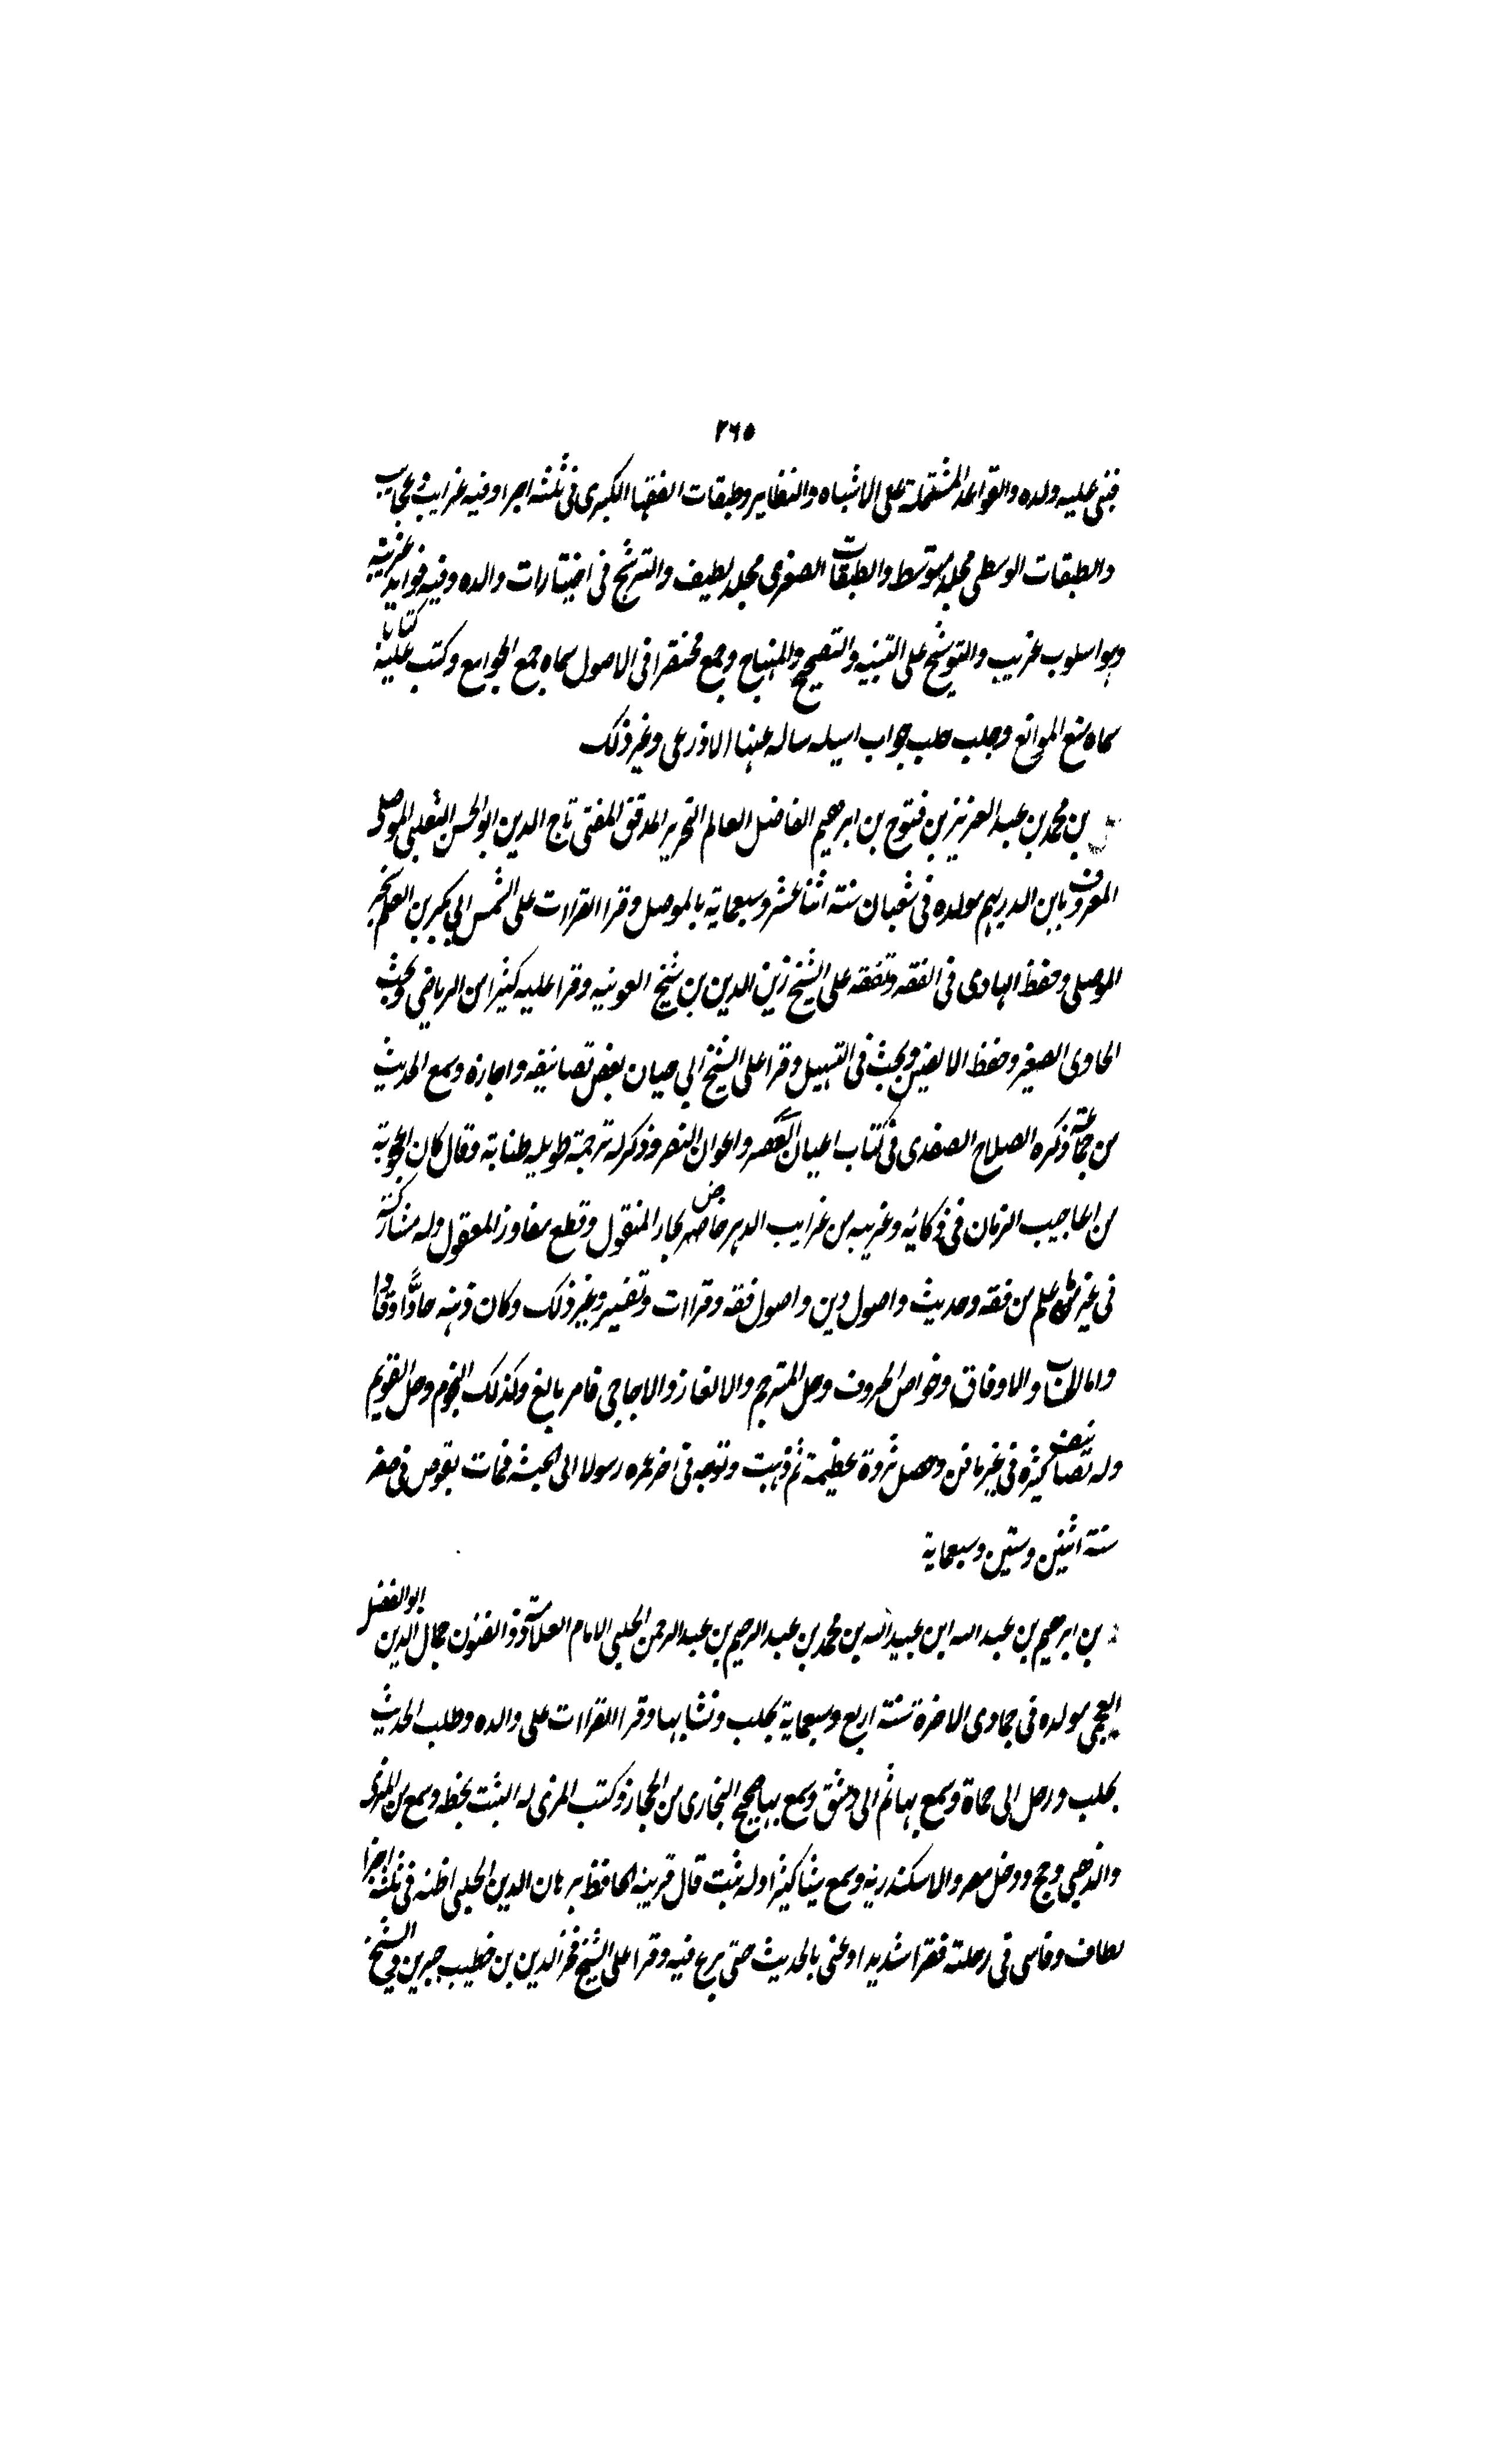 ٢٦٥
فبنى عليه ولده والقواعد المشتملة على الاشباه والنظاير وطبقات الفقها الكبرى فى ثلثة اجزا وفيه غرايب وعجايب
والطبقات الوسطى مجلد متوسط والطبقات الصغرى مجلد لطيف والترشيح فى اختيارات والده وفيه فوايد غريبة
وهو اسلوب غريب والتوشيح على التنبيه والتصحيح والمنهاج وجمع مختصرا فى الاصول سماه جمع الجوامع وكتب عليه كتابا
سماه منع الموانع وجلب حلب جواب اسيله ساله عنها الاذرعى وغير ذلك
بن محمد بن عبد العزيز بن فتوح بن ابرهيم الفاضل العالم النحرير المدقق المفتى تاج الدين ابو الحسن الثعلبى الموصلى
المعروف بابن الدريهم مولده فى شعبان سنة اثنا عشر وسبعماية بالموصل وقرا القراات على الشمس ابي بكر بن العلم
الموصلى وحفظ الهادى فى الفقه وتفقه على الشيخ زين الدين بن شيخ العوينيه وقرا عليه كثيرا من الرياضى وبحث
الحاوى الصغير وحفظ الالفيتين وبحث فى التسهيل وقرا على الشيخ ابي حيان بعض تصانيفه واجازه وسمع الحديث
من جماعة وذكره الصلاح الصفدى فى كتاب اعيان العصر واعوان النصر وذكر له ترجمة طويله طنابة وقال كان اعجوبة
من اعاجيب الزمان فى ذكائه وغريبه من غرايب الدهر خاض بحار المنقول وقطع مفاوز المعقول وله مشاركة
فى غير علم من فقه وحديث واصول دين واصول فقه وقراات وتفسير وغير ذلك وكان ذهنه حادًّا وقادا
واما الحساب والاوفاق وخواص الحروف وحل المترجم والالغاز والاحاجى فامر بالغ وكذلك النجوم وحل التقويم
وله تصانيف كثيرة فى غير ما فن وحصل ثروة عظيمة ثم ذهبت وتوجه فى اخر عمره رسولا الى الحبشه فمات بقوص فى صفر
سنة اثنين وستين وسبعماية
بن ابرهيم بن عبد الله ابن عبيد الله بن محمد بن عبد الرحيم بن عبد الرحمن الحلبى الامام العلامة ذو الفنون جمال الدين ابو الفضل
العجمى مولده فى جمادى الاخرة سنة اربع وسبعماية بحلب ونشا بها وقرا القراات على والده وطلب الحديث
بحلب ورحل الى حماة وسمع بها ثم الى دمشق وسمع بها صحيح البخارى من الحجار وكتب المزى له الثبت بخطه وسمع من المزى
والذهبى وحج ودخل مصر والاسكندرية وسمع شيا كثيرا وله ثبت قال قريبه الحافظ برهان الدين الحلبى اظنه فى ثلثة اجزا
لطاف وقاسى فى رحلته فقرا شديدا وعنى بالحديث حتى برع فيه وقرا على الشيخ فخر الدين بن خطيب جبرين والشيخ